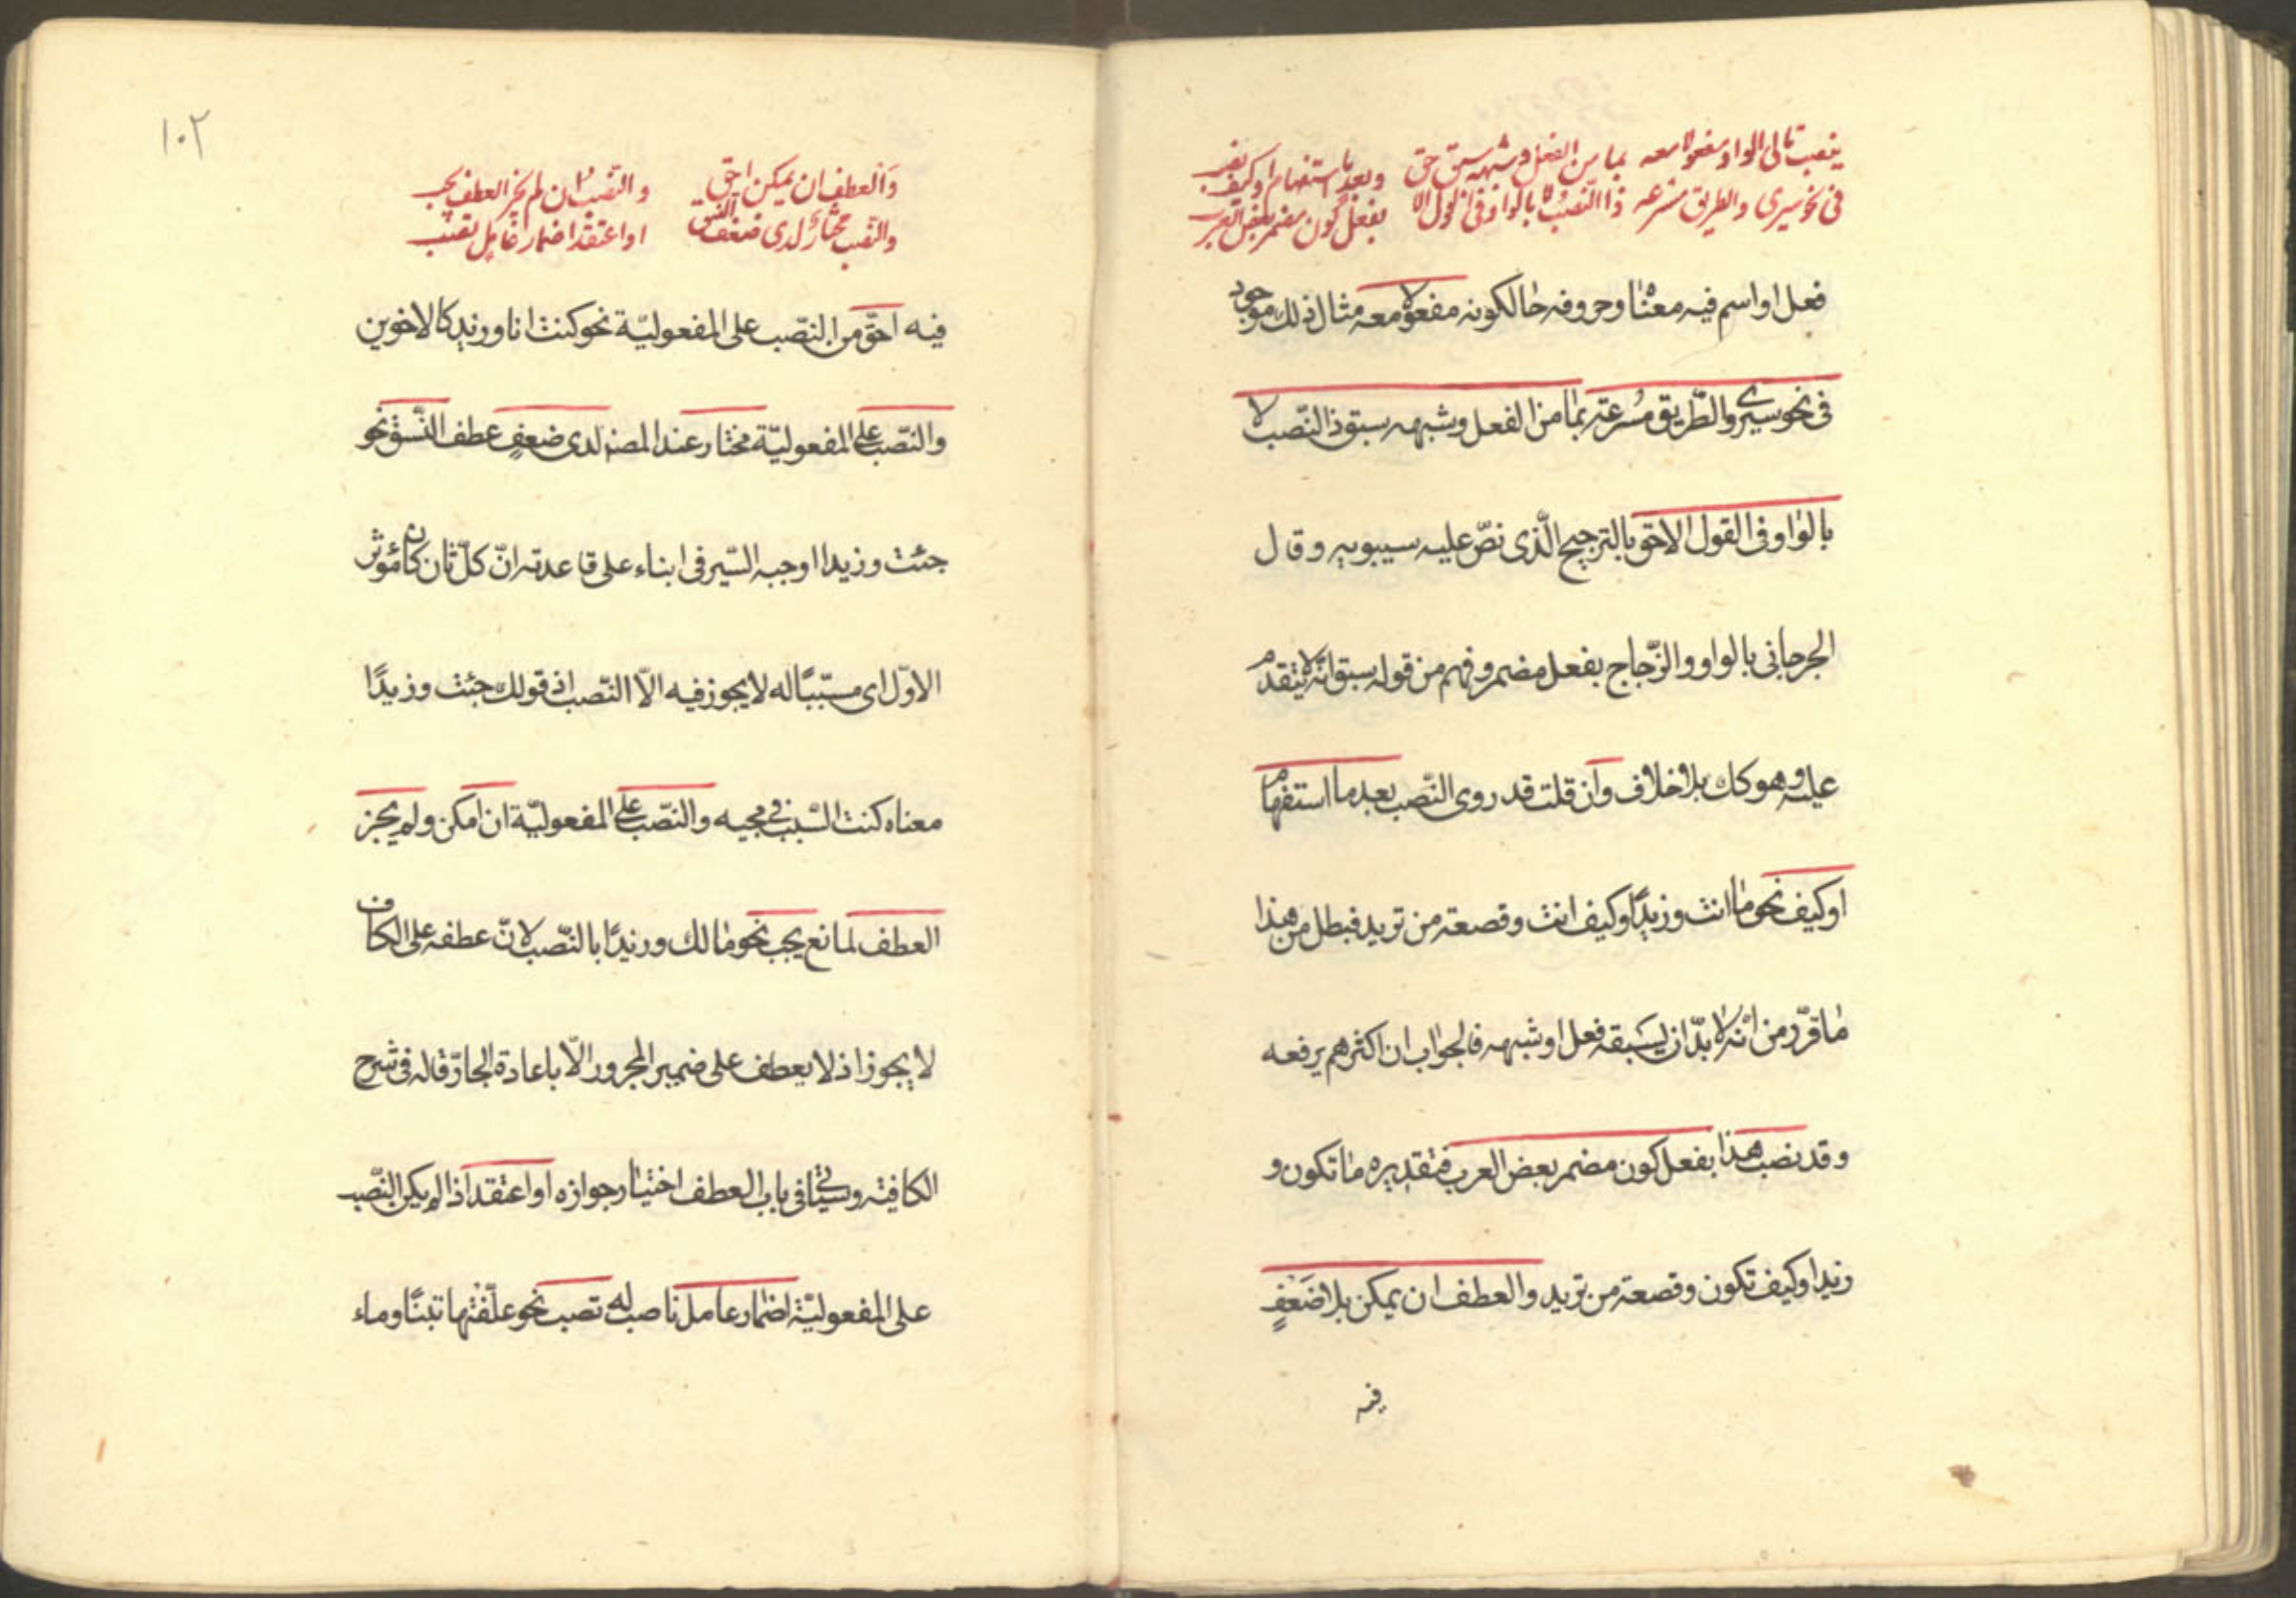 ينصب تالی الواو مفعولا معه بما من الفعل وشبهه سبق حق وبعد ما استفهام او كيف نصب
فی نحو سيری والطريق مسرعه ذا النصب لا بالواو فی القول الا بفعل كون مضمر بعض العرب
فعل او اسم فيه معناه وحروفه حالكونه مفعولا معه مثال ذلك موجود
فی نحو سيری والطّريق مُسرعته بما من الفعل وشبهه سبق ذا النّصب لا
بالواو فی القول الاحق بالترجيح الّذی نصّ عليه سيبويه وقال
الجرجانی بالواو والزّجاج بفعل مضمر وفهم من قوله سبق انّه لا يتقدم
عليه وهو كك بلا خلاف وان قلت قد روی النّصب بعد ما استفهام
او كيف نحو ما انت وزيدًا وكيف انت وقصعة من تريد فبطل من هذا
ما قرّر من انّه لا بدّ ان يسبقه فعل او شبهه فالجواب ان اكثرهم يرفعه
وقد نصب هذا بفعل كون مضمر بعض العرب فتقديره ما تكون و
زيدا وكيف تكون وقصعة من تريد والعطف ان يمكن بلا ضَعْفٍ
فيه
١٠٢
وَالعطف ان يمكن احق والنصب ان لم يجز العطف يجب
والنّصب مختار لدی ضعف النسق او اعتقد اضمار عامل تصب
فيه احقّ من النصّب علی المفعوليّة نحو كنت انا وزيد كالاخوين
والنصّب علی المفعوليّة مختار عند المصنف لدی ضعفٍ عطف النّسق نحو
جئت وزيدا اوجبه السّيرفی ابناء علی قاعدته انّ كلّ ثان كان مؤثر
الاوّل ای مسبّبًا له لا يجوز فيه الّا النّصب اذ قولك جئت وزيدًا
معناه كنت السّبب فی مجيه والنصّب علی المفعوليّة ان امكن ولم يجز
العطف لمانع يجب نحو مالك وزيدًا بالنّصب لانّ عطفه علی الكاف
لا يجوز اذ لا يعطف علی ضمير المجرور الّا باعادة الجارّ قاله فی شرح
الكافية وسيأتی فی باب العطف اختيار جوازه او اعتقد اذا لم يكن النّصب
علی المفعوليّة اضمار عامل ناصب له تصب نحو علّفتها تبنًا وماء